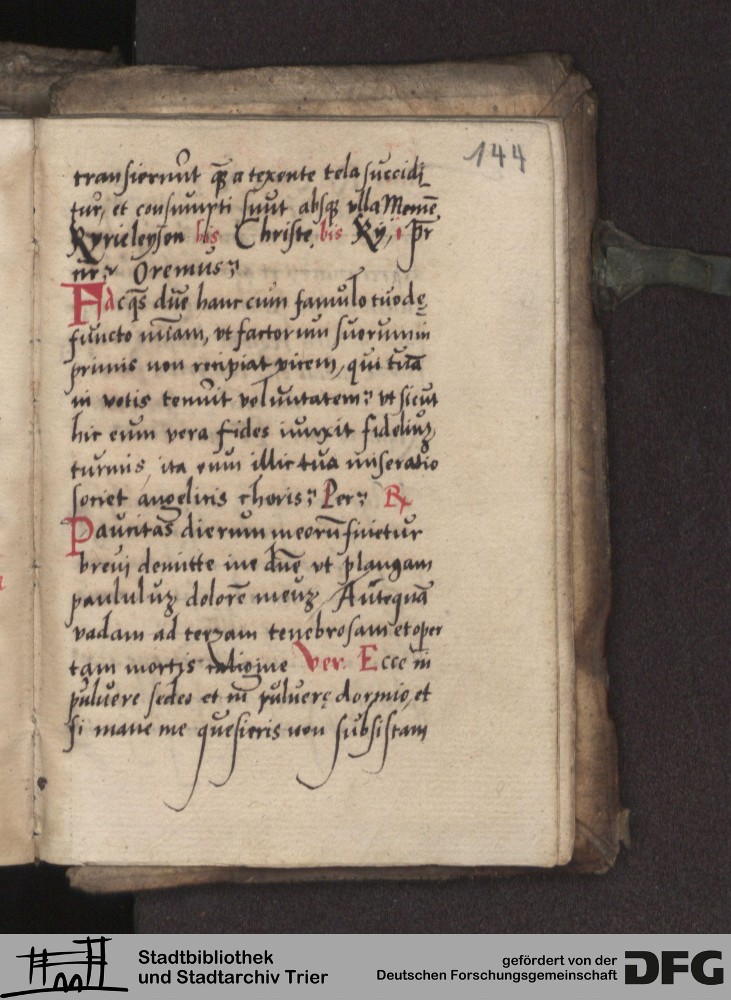 144
transierunt qua a texente tela succidi
tur, et consumpti sunt absque ulla
Kyrieleyson bis Christe bis Ky, i pr
nr: Oremus:
Facqs due hanc cum famulo tuo de
functo miam, vt factorum suorum in
primis non recipiat vicem, qui tua
in votis tenuit voluntatem: vt sicut
hic eum vera fides iunxit fideliuz
turmis, ita eum illic tua miseratio
societ angelicis choris: Per: R
Paucitas dierum meoru finietur
brevi demitte me due vt plangam
paululuz dolore meuz, Antequa
vadam ad terram tenebrosam et oper
tam mortis caligine Ver. Ecce in
pulvere sedeo et in pulvere dormio, et
si mane me quesieris non subsistam
Stadtbibliothek
und Stadtarchiv Trier
gefördert von der
Deutschen Forschungsgemeinschaft
DFG